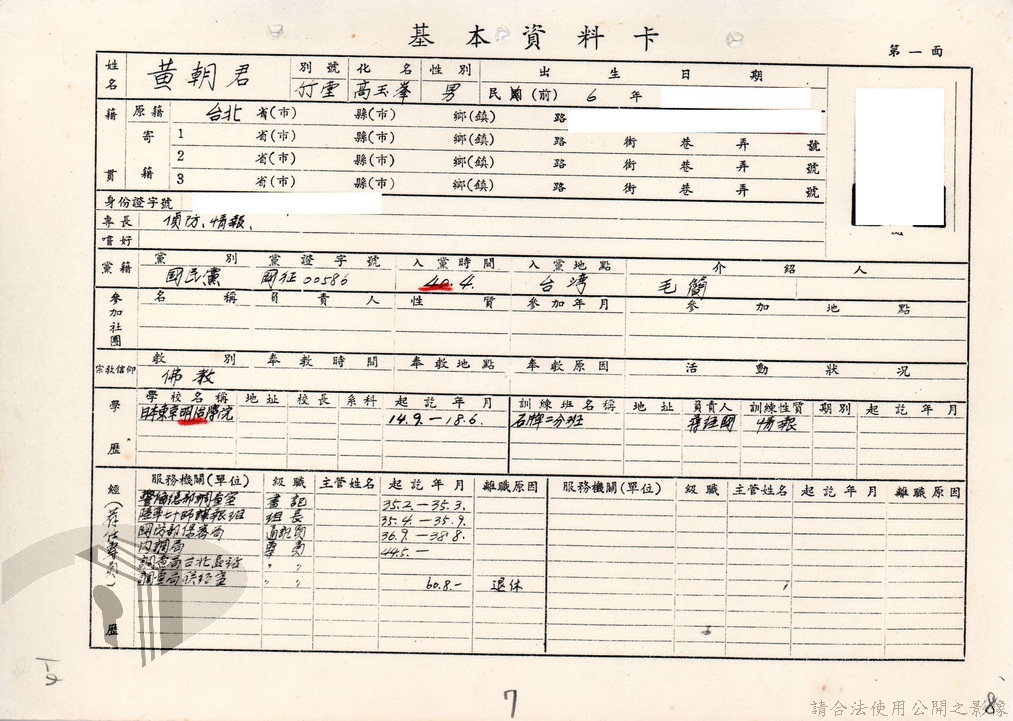 基本資料卡
第一面
姓名 黃朝君 別號 竹堂 化名 高玉峯 性別 男 出生日期 民國(前) 6 年
籍貫 原籍 台北 省(市) 縣(市) 鄉(鎮) 路
寄籍 1 省(市) 縣(市) 鄉(鎮) 路 街 巷 弄 號
2 省(市) 縣(市) 鄉(鎮) 路 街 巷 弄 號
3 省(市) 縣(市) 鄉(鎮) 路 街 巷 弄 號
身份證字號
專長 偵防、情報、
嗜好
黨籍 黨別 黨證字號 入黨時間 入黨地點 介紹人
國民黨 國征00586 40.4 台灣 毛簡
參加社團 名稱 負責人 性質 參加年月 參加地點
宗教信仰 教別 奉教時間 奉教地點 奉教原因 活動狀況
佛教
學歷 學校名稱 地址 校長 系科 起訖年月 訓練班名稱 地址 負責人 訓練性質 期別 起訖年月
日本東京明治學院 14.9.—18.6. 石牌二分班 蔣經國 情報
經歷 服務機關(單位) 級職 主管姓名 起訖年月 離職原因 服務機關(單位) 級職 主管姓名 起訖年月 離職原因
警備總部調查室 書記 35.2.—35.3.
陸軍七十師諜報組 組長 35.4.—35.9.
國防部保密局 通訊員 36.9.—38.8.
內調局 專員 44.5.—
調查局台北區站 〃 〃
調查局 〃 〃 60.8.— 退休
7
8
請合法使用公開之影像